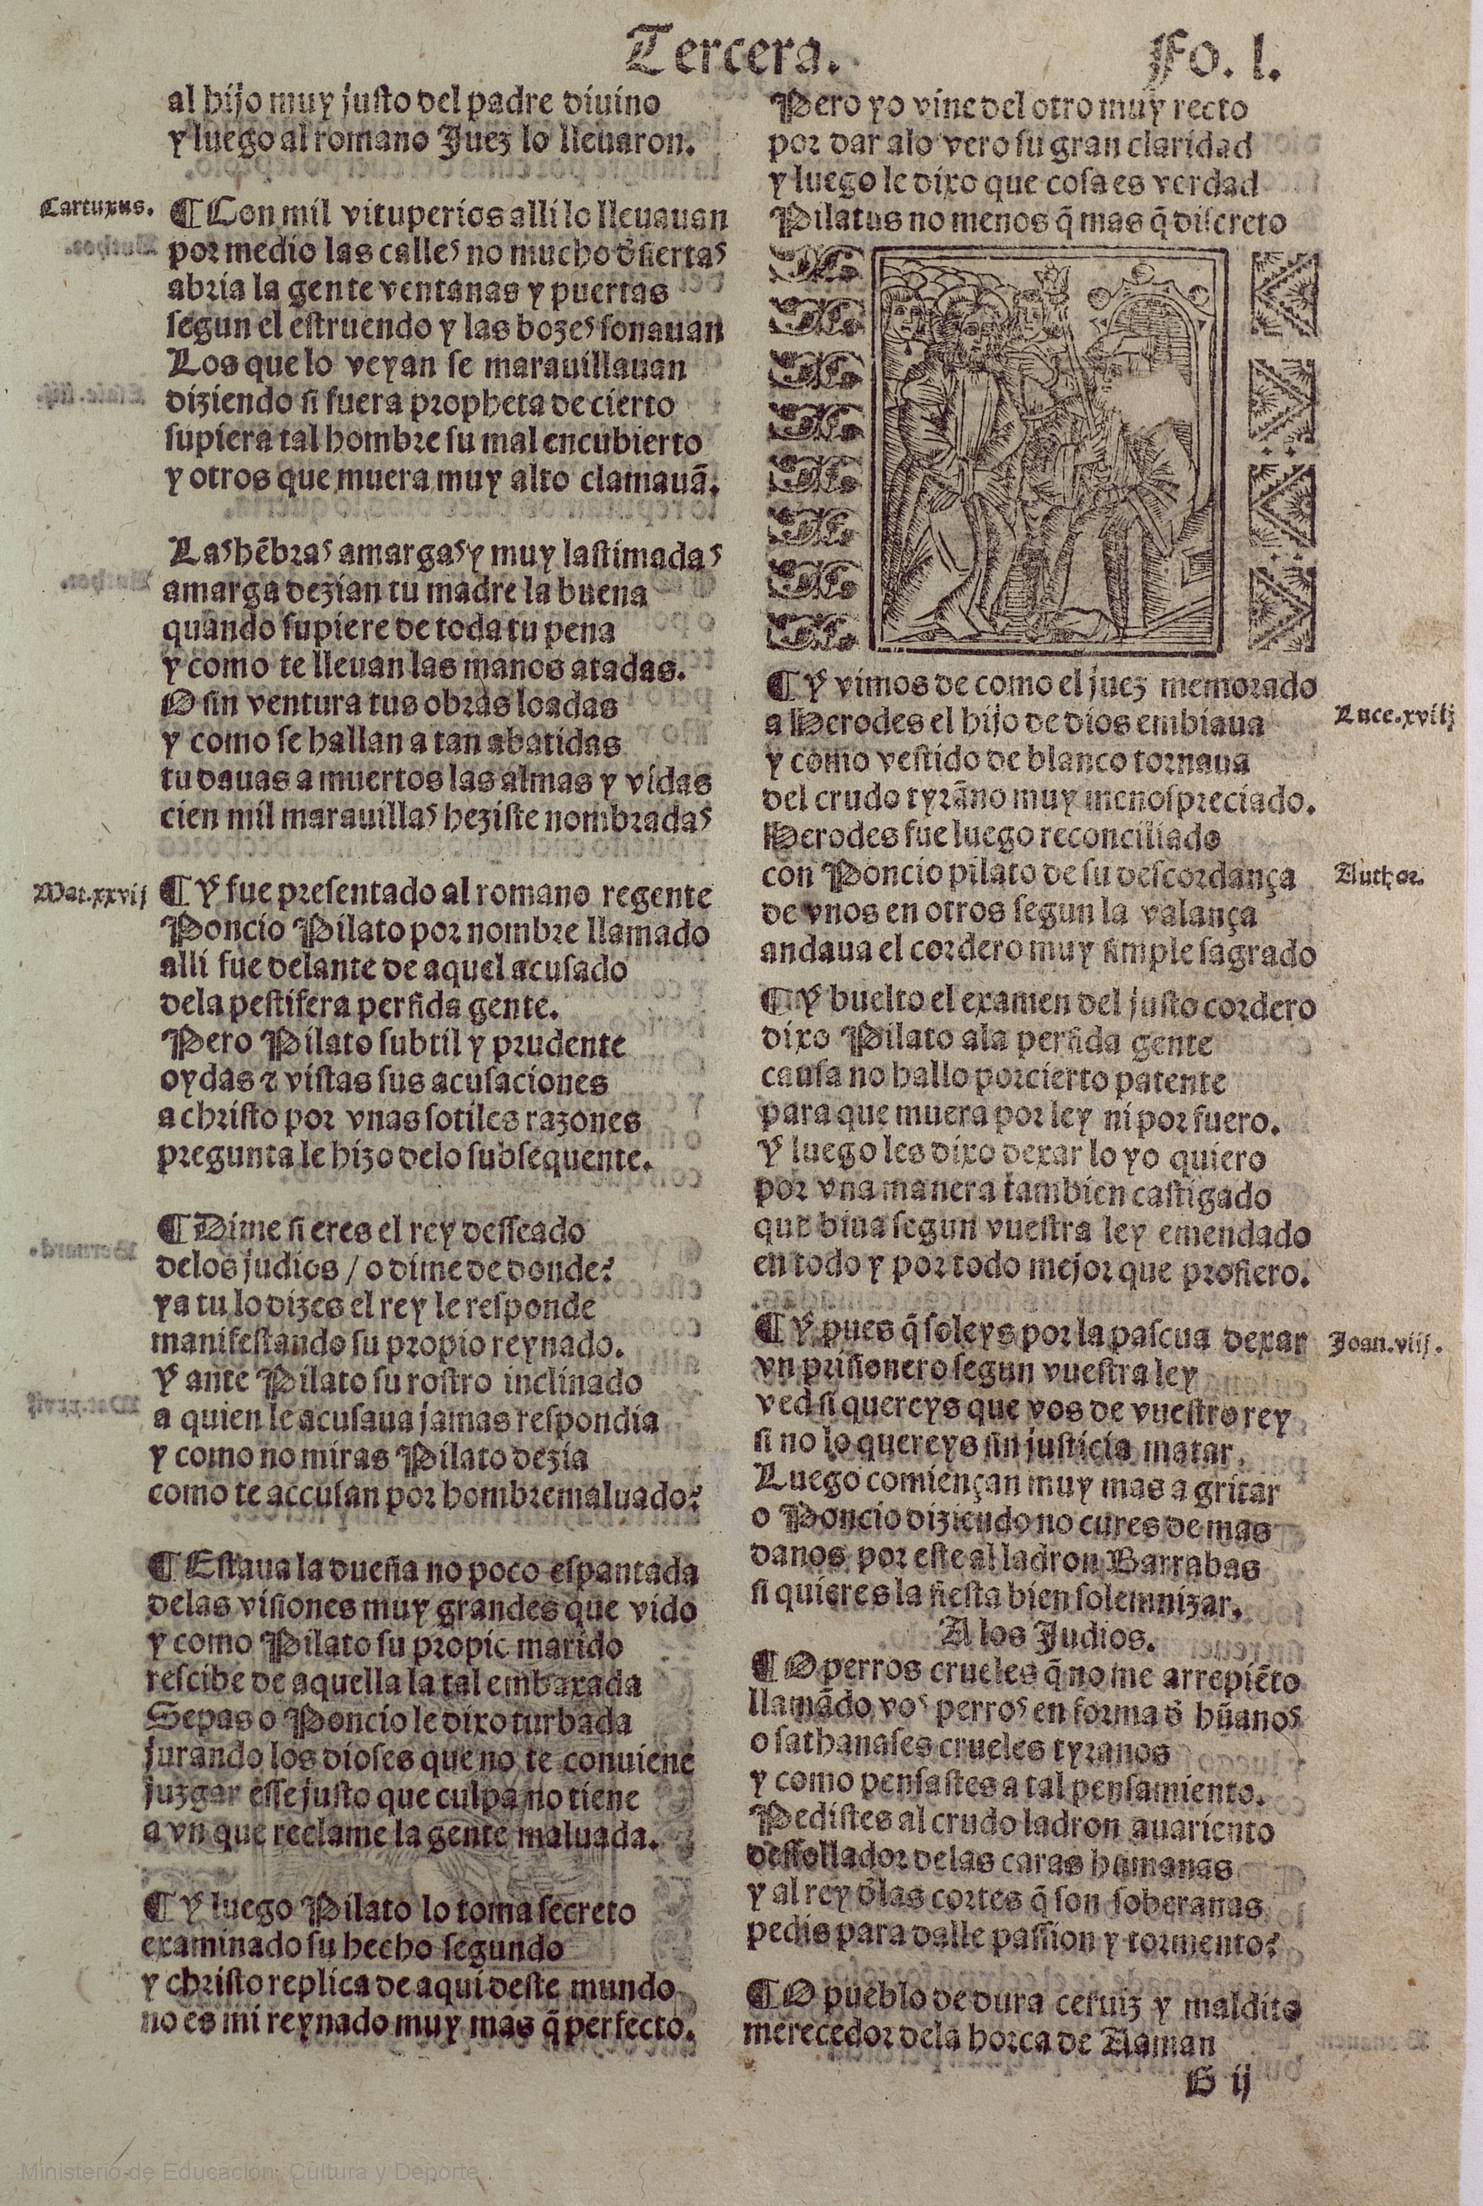 Tercera.
Fo. l.
al hijo muy justo del padre diuino
y luego al romano Juez lo lleuaron.
Cartuxus.
¶ Con mil vituperios alli lo lleuauan
por medio las calles no mucho d̄siertas
abria la gente ventanas y puertas
segun el estruendo y las bozes sonauan
Los que lo veyan se marauillauan
diziendo si fuera propheta de cierto
supiera tal hombre su mal encubierto
y otros que muera muy alto clamauā.
Las hēbras amargas y muy lastimadas
amarga dezian tu madre la buena
quando supiere de toda tu pena
y como te lleuan las manos atadas.
O sin ventura tus obras loadas
y como se hallan a tan abatidas
tu dauas a muertos las almas y vidas
cien mil marauillas heziste nombradas
Mat.xxvij
¶ Y fue presentado al romano regente
Poncio Pilato por nombre llamado
alli fue delante de aquel acusado
dela pestifera perfida gente.
Pero Pilato subtil y prudente
oydas ⁊ vistas sus acusaciones
a christo por vnas sotiles razones
pregunta le hizo delo subsequente.
¶ Dime si eres el rey desseado
delos judios / o dime de donde?
ya tu lo dizes el rey le responde
manifestando su propio reynado.
Y ante Pilato su rostro inclinado
a quien le acusaua jamas respondia
y como no miras Pilato dezia
como te accusan por hombre maluado?
¶ Estaua la dueña no poco espantada
delas visiones muy grandes que vido
y como Pilato su propic marido
rescibe de aquella la tal embaxada
Sepas o Poncio le dixo turbada
jurando los dioses que no te conuiene
juzgar esse justo que culpa no tiene
a vn que reclame la gente maluada.
¶ Y luego Pilato lo toma secreto
examinado su hecho segundo
y christo replica de aqui deste mundo
no es mi reynado muy mas q̄ perfecto.
Pero yo vine del otro muy recto
por dar alo vero su gran claridad
y luego le dixo que cosa es verdad
Pilatus no menos q̄ mas q̄ discreto
¶ Y vimos de como el juez memorado
a Herodes el hijo de dios embiaua
Luce.xviij
y como vestido de blanco tornaua
del crudo tyrāno muy menospreciado.
Herodes fue luego reconciliado
con Poncio pilato de su descordança
Author.
de vnos en otros segun la valança
andaua el cordero muy simple sagrado
¶ Y buelto el examen del justo cordero
dixo Pilato ala perfida gente
causa no hallo porcierto patente
para que muera por ley ni por fuero.
Y luego les dixo dexar lo yo quiero
por vna manera tambien castigado
que biua segun vuestra ley emendado
en todo y por todo mejor que profiero.
¶ Y pues q̄ soleys por la pascua dexar
Joan.viij.
vn prisionero segun vuestra ley
ved si quereys que vos de vuestro rey
si no lo quereys sin justicia matar.
Luego comiençan muy mas a gritar
o Poncio diziendo no cures de mas
danos por este al ladron Barrabas
si quieres la fiesta bien solemnizar.
A los Judios.
¶ O perros crueles q̄ no me arrepiēto
llamādo vos perros en forma d̄ hūanos
o sathanases crueles tyranos
y como pensastes a tal pensamiento.
Pedistes al crudo ladron auariento
dessollador delas caras humanas
y al rey d̄las cortes q̄ son soberanas
pedis para dalle passion y tormento?
¶ O pueblo de dura ceruiz y maldito
merecedor dela horca de Aaman
G ij
Ministerio de Educación, Cultura y Deporte